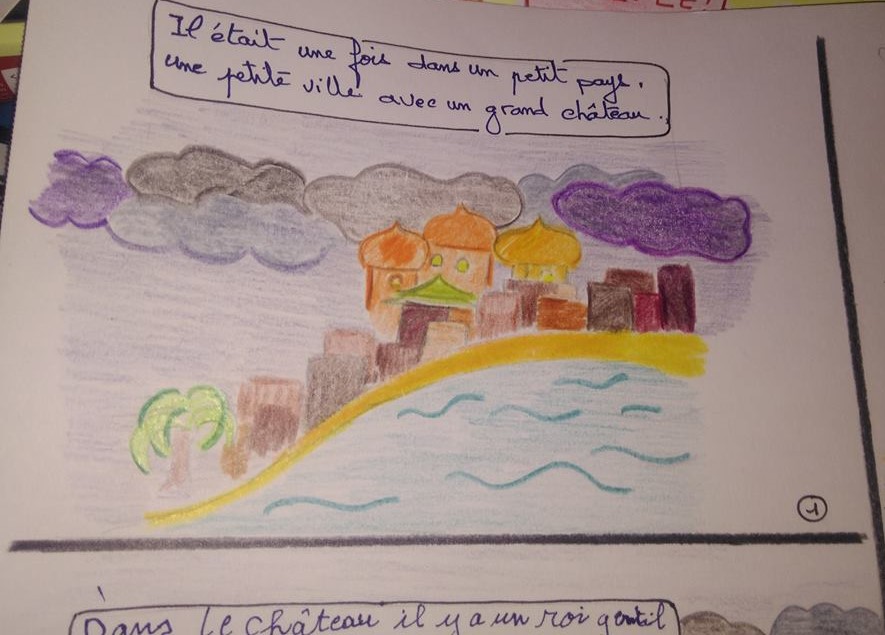 Il était une fois dans un petit pays.
une petite ville avec un grand château.
1
Dans le château il y a un roi gentil